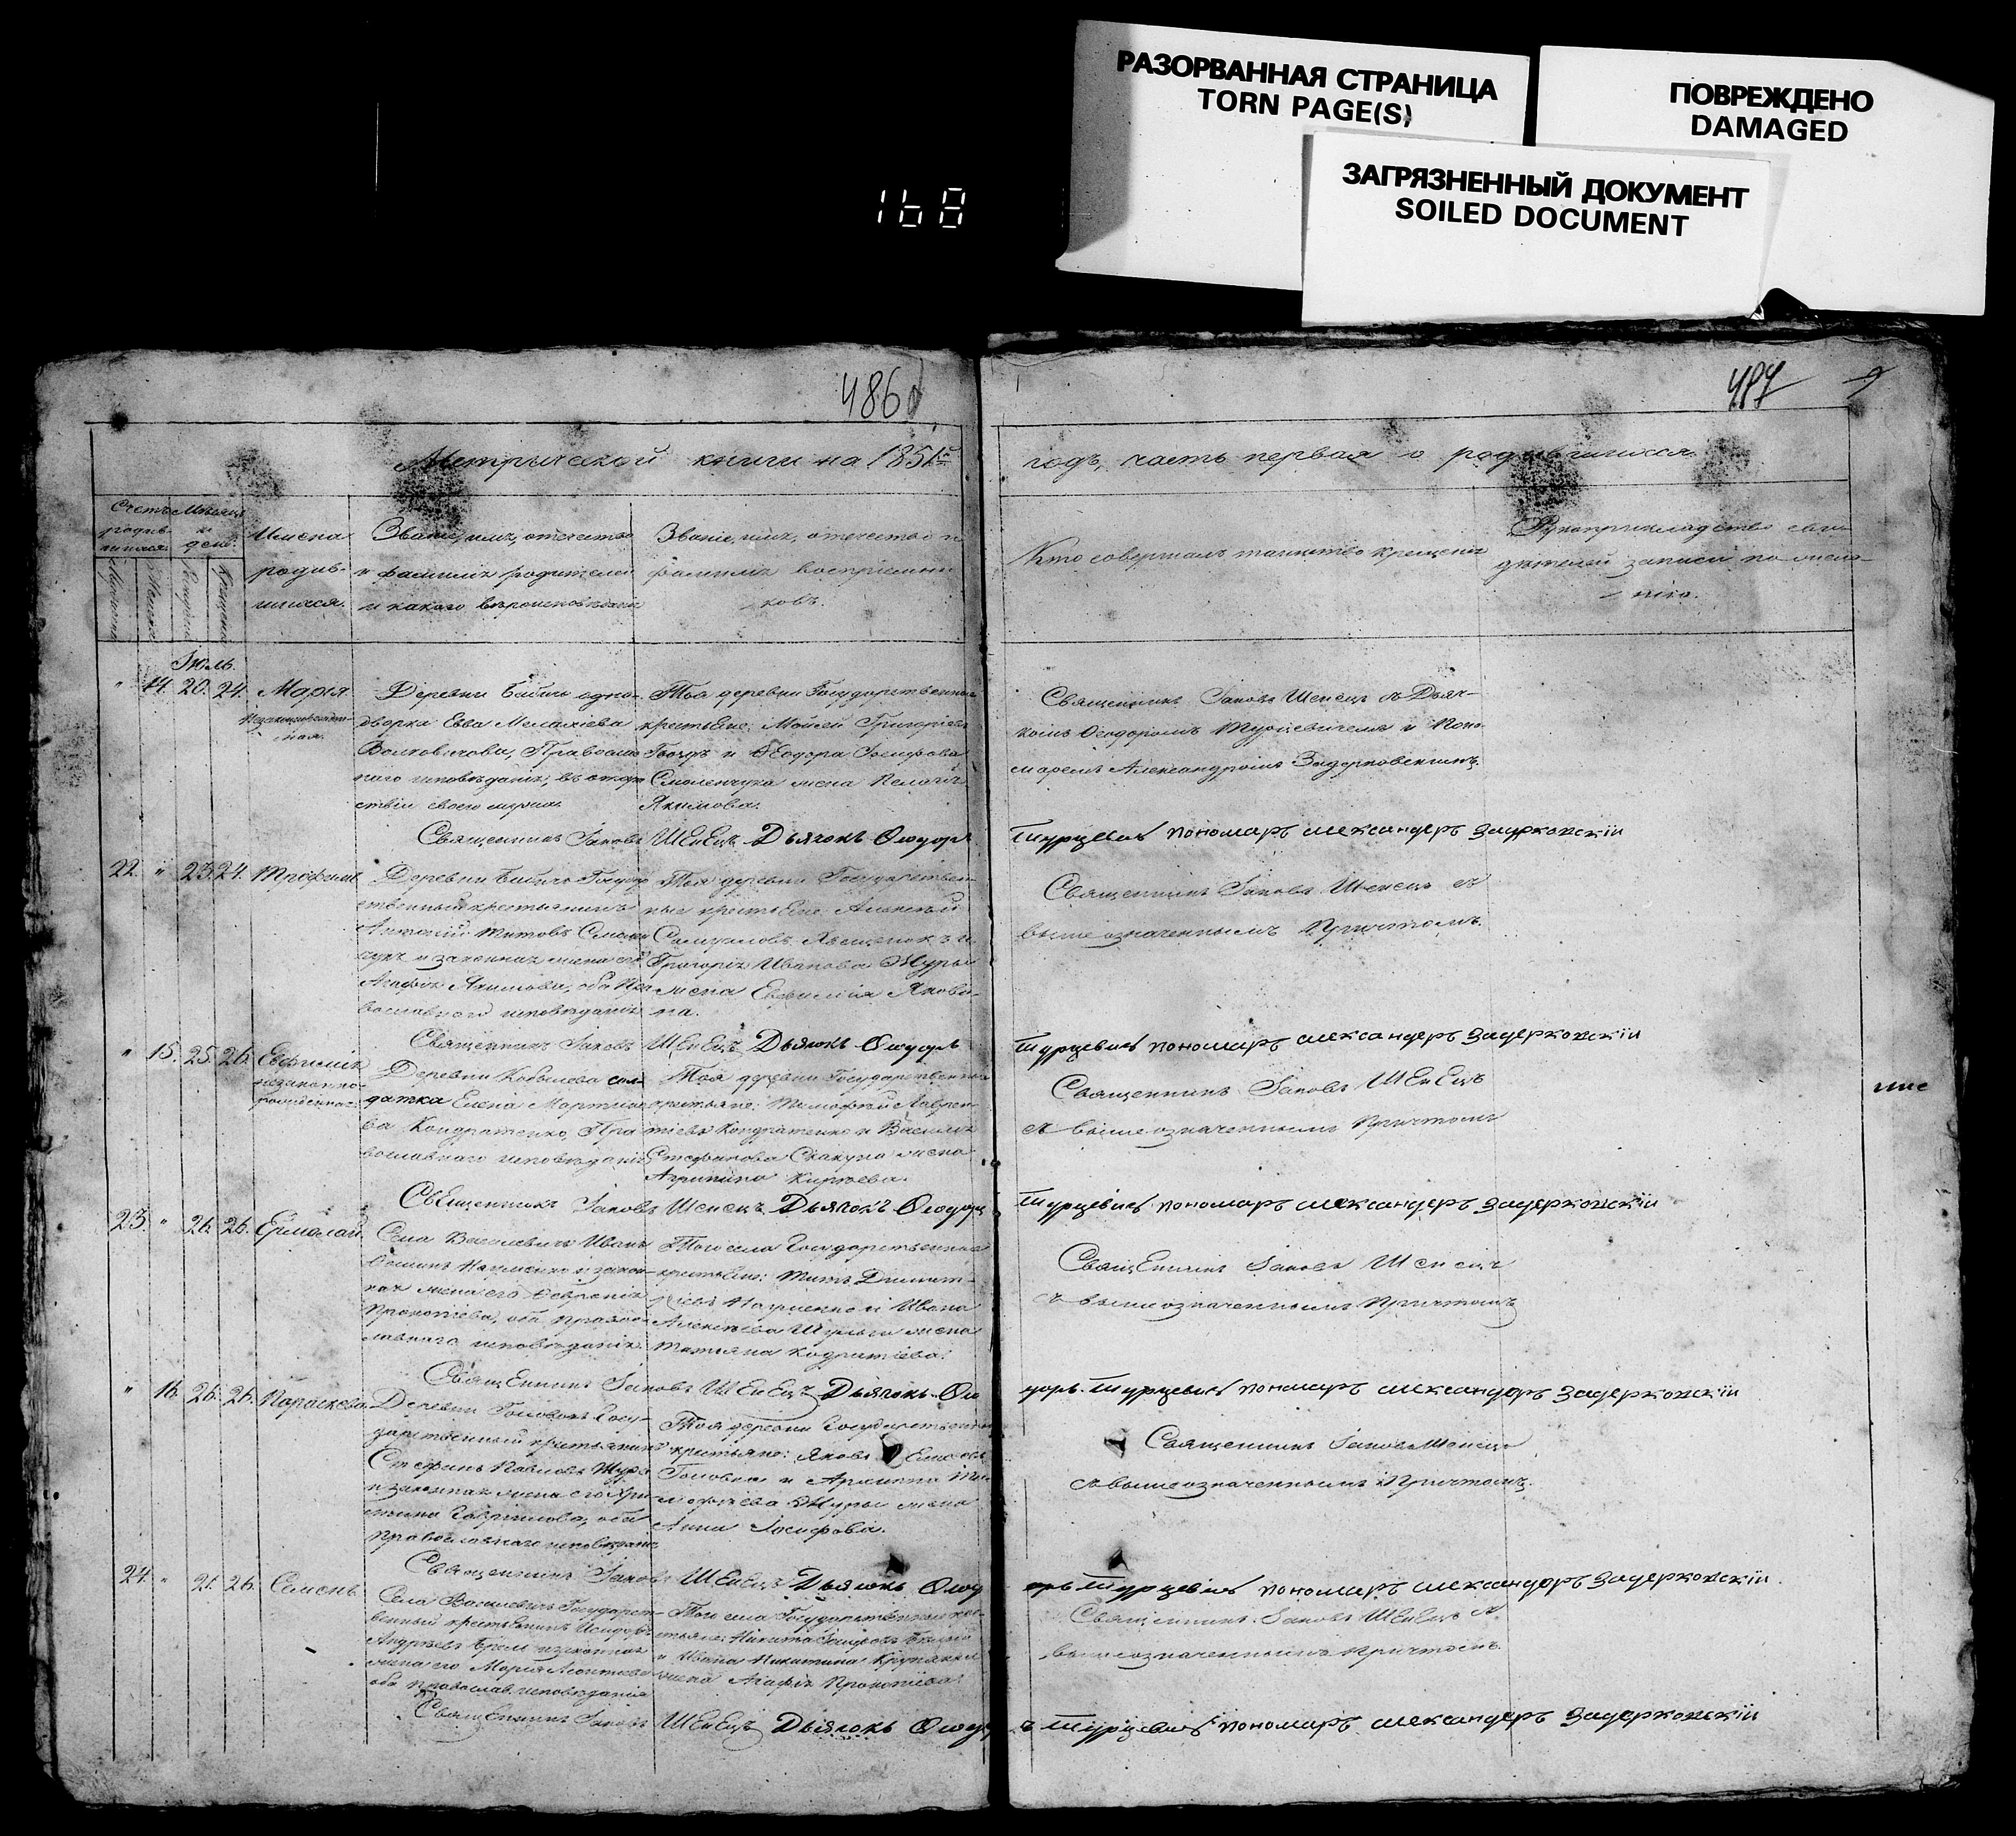 РАЗОРВАННАЯ СТРАНИЦА
TORN PAGE(S)
ПОВРЕЖДЕНО
DAMAGED
ЗАГРЯЗНЕННЫЙ ДОКУМЕНТ
SOILED DOCUMENT
168
486
487
Метрической книги на 1851й
годъ, часть первая о родившихся
Счетъ родив-шихся.
Мѣсяцъ и день.
Имена
родив-
шихся.
Званіе, имя, отечество
и фамилія родителей
и какого вѣроисповѣданія
Званіе, имя, отечество и
фамилія воспріемни
ковъ.
Кто совершалъ таинство крещенія
Рукоприкладство сви-
дѣтелей записи по жела-
нію.
Іюль.
" 14. 20. 24. Марія
Незаконнорожден-
ная.
Деревни одно-
дворка Ева
Православ
наго исповѣданія, въ отсут
ствіи своего мужа
Тоя деревни Государственные
крестьяне: Мойсей Григоріевъ
и Ѳеодора Іосифова
Смоленчука жена Пелагія
Якимова.
Священникъ Іаковъ Шенецъ съ Дьяч-
комъ Ѳеодоромъ Турцевичемъ и Поно
маремъ Александромъ Задерковскимъ.
Священникъ Іаковъ Шенецъ Дьячокъ Ѳеодоръ
Турцевичъ пономаръ Александеръ Задерковскій
22. " 23. 24. Трофимъ
Деревни Государ
ственный крестьянинъ
Титовъ Смолен
чукъ и законная жена его
Агафія Якимова, оба Пра
вославнаго исповѣданія
Тоя деревни Государствен-
ные крестьяне: Алексѣй
Самуиловъ и
Григорія Иванова Журы
жена Евфимія Якови-
на.
Священникъ Іаковъ Шенецъ съ
вышеозначеннымъ Причтомъ.
Священникъ Іаковъ Шенецъ Дьячокъ Ѳеодоръ
Турцевичъ пономаръ Александеръ Задерковскій
" 15. 25. 26. Евфимія
незаконно-
рожденная.
Деревни Кобылева сол
датка Елена Мартино
ва Кондратенко, Пра
вославнаго исповѣданія
Тоя деревни Государственные
крестьяне: Тимофей Лаврен
тіевъ Кондратенко и Василія
Стефанова Скакуна жена
Агрипина
Священникъ Іаковъ Шенецъ
съ вышеозначеннымъ Причтомъ
Священникъ Іаковъ Шенецъ Дьячокъ Ѳеодоръ
Турцевичъ пономаръ Александеръ Задерковскій
23. " 26. 26. Ермолай
Села Василевичъ Иванъ
Науменко и закон-
ная жена его
Прокопіева, оба Правос
лавнаго исповѣданія.
Того села Государственные
крестьяне: Титъ Димит-
ріевъ Науменко и Ивана
Алексѣева жена
Татьяна Кодратіева.
Священникъ Іаковъ Шенецъ
съ вышеозначеннымъ Причтомъ
Священникъ Іаковъ Шенецъ Дьячокъ Ѳео
доръ Турцевичъ пономаръ Александоръ Задерковскій
" 16. 26. 26. Параскева
Деревни Госу-
дарственный крестьянинъ
Стефанъ Павловъ Жура
и законная жена его Хри
стина Гавріилова, оба
Православнаго исповѣданія
Тоя деревни Государственные
крестьяне: Яковъ
и Архипа Ти
мофѣева Журы жена
Анна Іосифова.
Священникъ Іаковъ Шенецъ
съ вышеозначеннымъ Причтомъ.
Священникъ Іаковъ Шенецъ Дьячокъ Ѳеод
оръ Турцевичъ пономаръ Александоръ Задерковскій
24. " 21. 26. Семенъ
Села Василевичъ Государст-
венный крестьянинъ Исидоръ
Андреевъ и законная
жена его Марія Леонтіева
оба православ. исповѣданія
Того села Государственные кре-
стьяне: Никита
и Ивана Никитина
жена Агафія Прокопіева.
Священникъ Іаковъ Шенецъ съ
вышеозначеннымъ Причтомъ.
Священникъ Іаковъ Шенецъ Дьячокъ Ѳеодор
ъ Турцевичъ пономаръ Александеръ Задерковскій